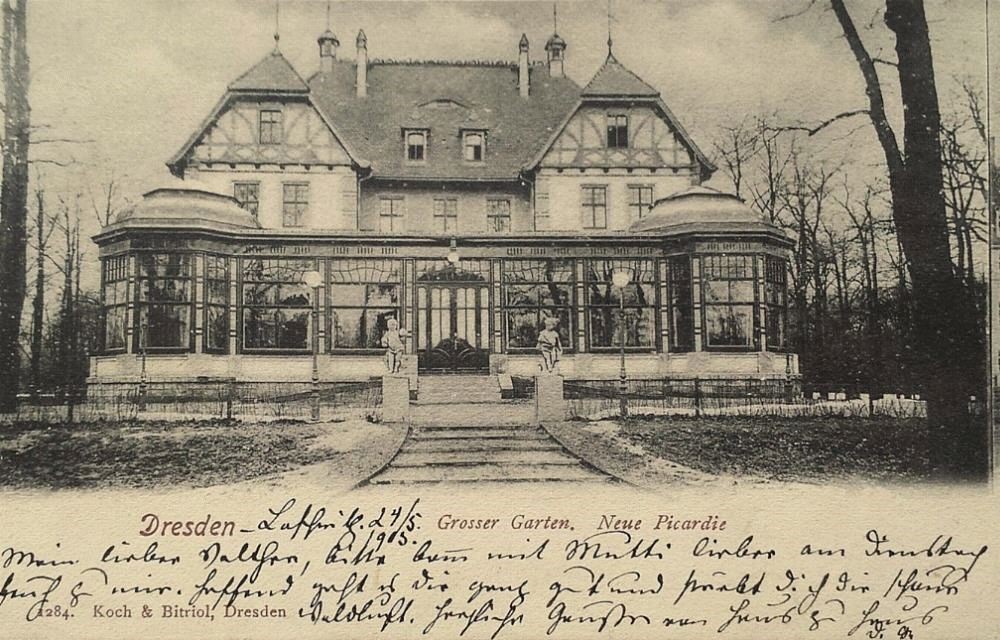 Dresden - Laschwitz. 24/5. 1903. Grosser Garten. Neue Picardie
Mein lieber Walther, bitte komm mit Mutti lieber am Dienstag
zu mir. Hoffend geht es dir ganz gut und stärkt dich die schöne
1284. Koch & Bitriol, Dresden Waldluft. Herzliche Grüsse von Haus zu Haus